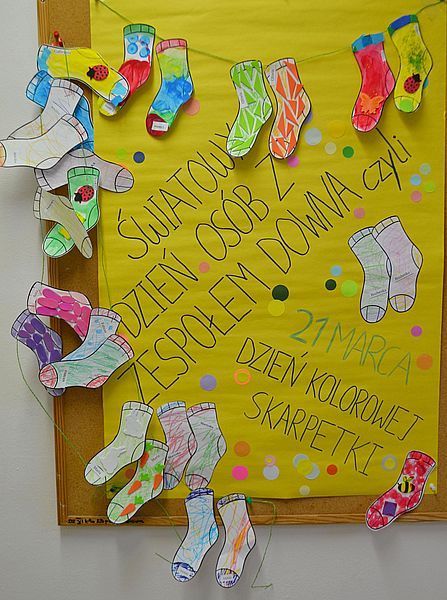 ŚWIATOWY
DZIEŃ OSÓB Z
ZESPOŁEM DOWNA czyli
21 MARCA
DZIEŃ KOLOROWEJ
SKARPETKI